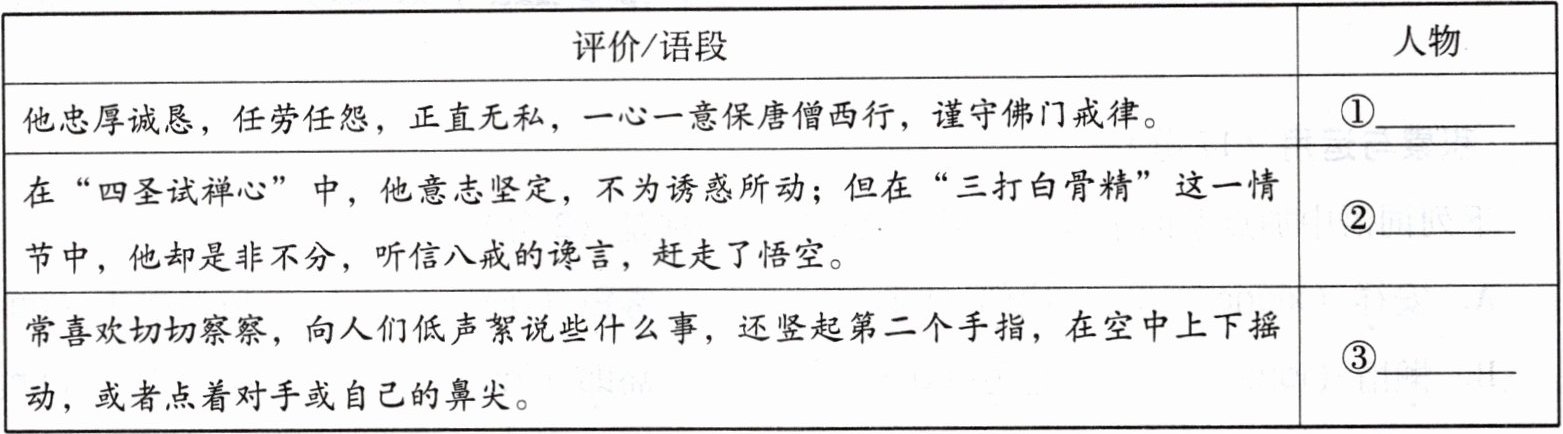 评价/语段 人物
他忠厚诚恳，任劳任怨，正直无私，一心一意保唐僧西行，谨守佛门戒律。 ①
在“四圣试禅心”中，他意志坚定，不为诱惑所动；但在“三打白骨精”这一情
节中，他却是非不分，听信八戒的谗言，赶走了悟空。 ②
常喜欢切切察察，向人们低声絮说些什么事，还竖起第二个手指，在空中上下摇
动，或者点着对手或自己的鼻尖。 ③